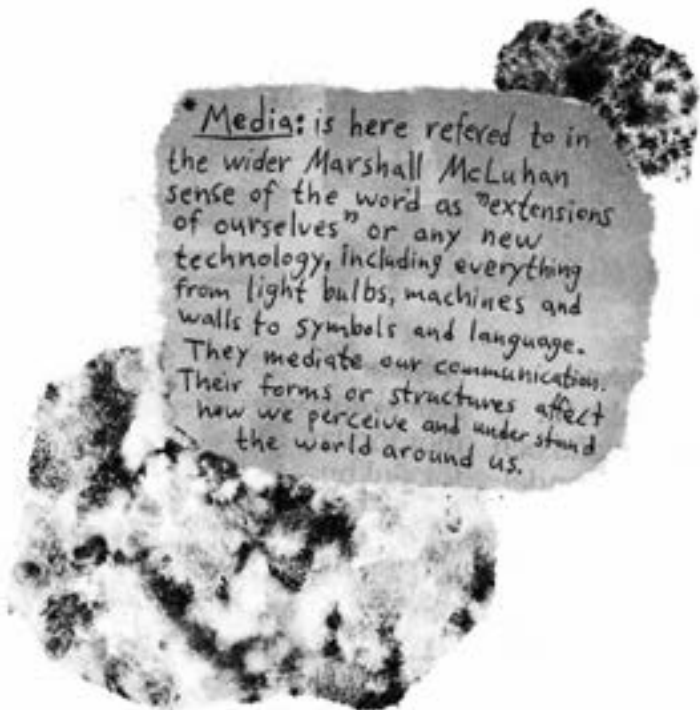 * Media: is here refered to in
the wider Marshall McLuhan
sense of the word as "extensions
of ourselves" or any new
technology, including everything
from light bulbs, machines and
walls to symbols and language.
They mediate our communication.
Their forms or structures affect
how we perceive and understand
the world around us.